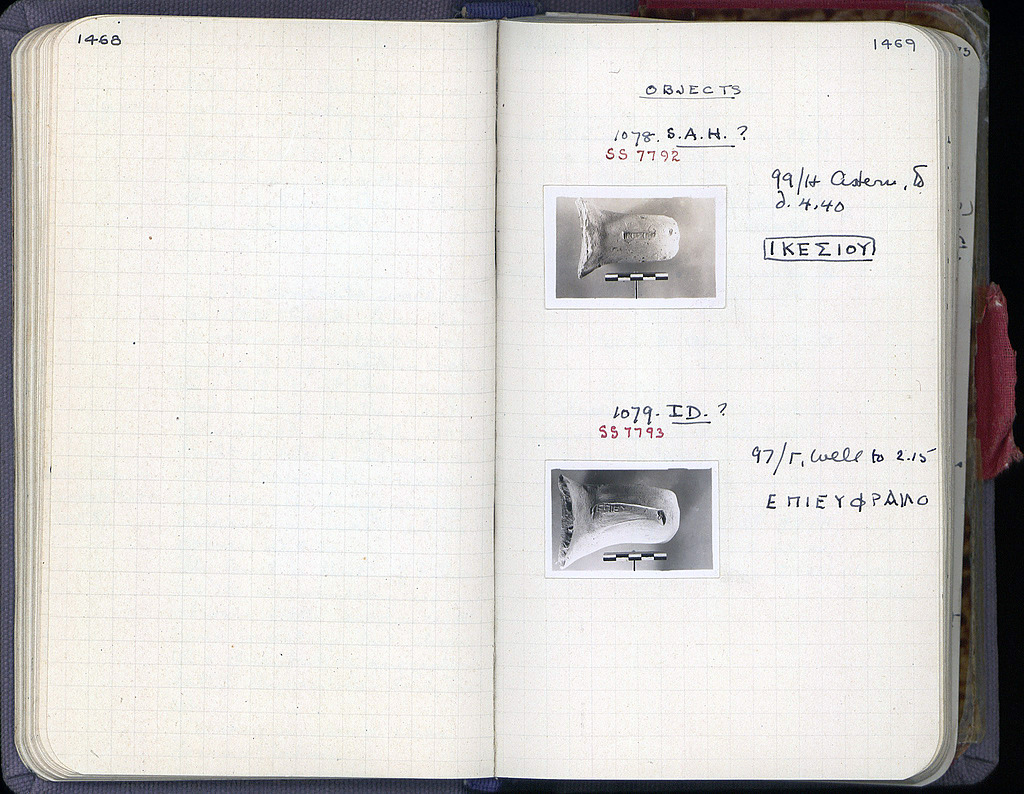 1468
1469
OBJECTS
1078. S.A.H. ?
SS 7792
99/Η Cistern,
d. 4.40
ΙΚΕΣΙΟΥ
1079. ID. ?
SS 7793
97/Γ, Well to 2.15
ΕΠΙΕΥΦΡΑΝΟ